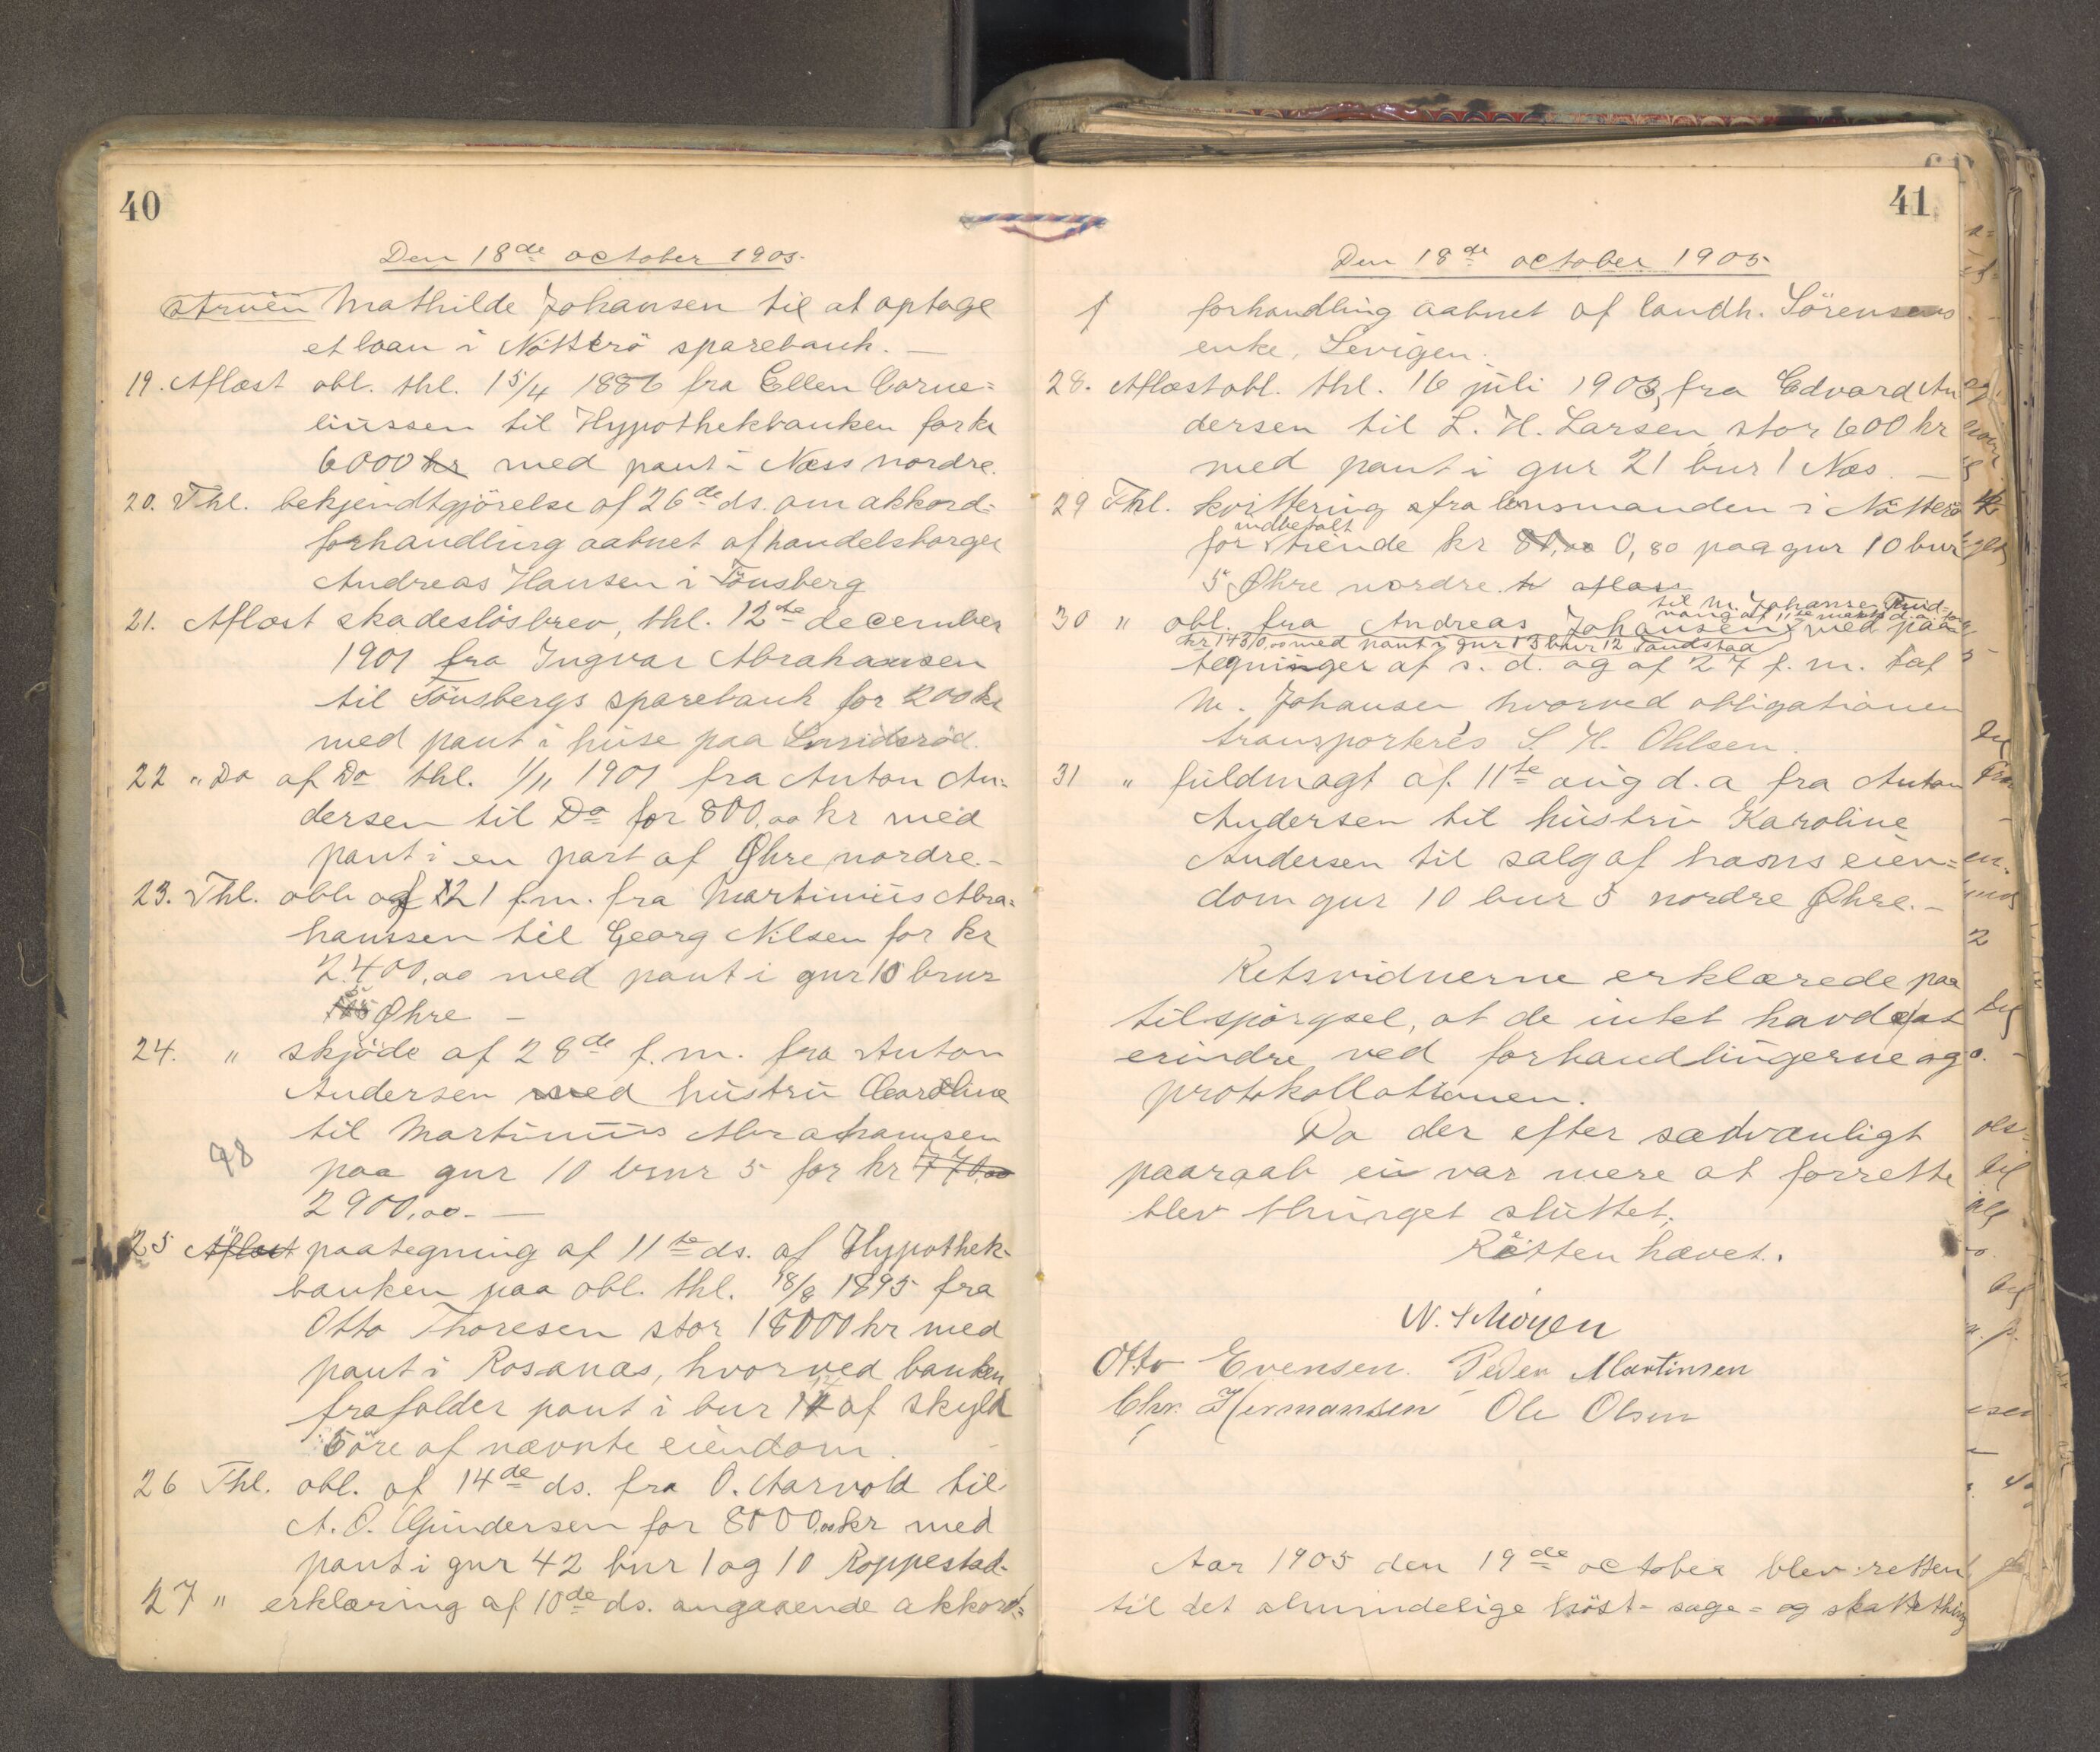 40
Den 18de october 1905.
struën Mathilde Johansen til at optage
et laan i Nötterö sparebank. —
19. Aflæst obl. thl. 15/4 1886 fra Ellen Corne=
liussen til Hypothekbanken for kr
6000 kr med pant i Næss nordre.
20. Thl. bekjendtgjörelse af 26de ds. om akkord=
forhandling aabnet af handelsborger
Andreas Hansen i Tönsberg
21. Aflæst skadeslösbrev, thl. 12te december
1901 fra Ingvar Abrahamsen
til Tönsbergs sparebank for 200 kr
med pant i huse paa
22 " Do af Do thl. 1/11 1901 fra Anton An=
dersen til Do for 800,00 kr med
pant i en part af Øhre nordre. -
23. Thl. obl. af 21 f.m. fra Martinius Abra=
hamssen til Georg Nilsen for kr
2400,00 med pant i gnr 10 brnr
5 Øhre —
24. " skjöde af 28de f. m. fra Anton
Andersen med hustru Caroline
til Martinius Abrahamsen
98
paa gnr 10 brnr 5 for kr 770,00
2900,00. —
25 Aflæst paategning af 11te ds. af Hypothek-
banken paa obl. thl. 18/8 1895 fra
Otto Thoresen stor 18000 kr med
pant i Rosanæs, hvorved banken
frafalder pant i bnr 14 af skyld
6 öre af nævnte eiendom.
26 Thl. obl. af 14de ds. fra O. Aarvold til
A. O. Gundersen for 8000,00 kr med
pant i gnr 42 bnr 1 og 10 Roppestad.
27 " erklæring af 10de ds. angaaende akkord=
41
Den 18de october 1905
forhandling aabnet af landh. Sörensens
enke, Sevigen.
28. Aflæst obl. thl. 16 juli 1903, fra Edvard An
dersen til L. H. Larsen, stor 600 kr
med pant i gnr 21 bnr 1 Næs. —
29 Thl. kvittering fra lensmanden i Nötterö
indbetalt
for tiende kr 81,00 0,80 paa gnr 10 bnr
5 Øhre nordre. aflæs
til M. Johansen
30 " obl. fra Andreas Johansen med paa
kr 1430,00 med pant i gnr 13 bnr 12
tegninger af s. d. og af 27 f. m. fal
M. Johansen hvorved obligationen
transporteres S. H. Ohlsen.
31 " fuldmagt af 11te aug d. a fra Anton
Andersen til hustru Karoline
Andersen til salg af hans eien=
dom gnr 10 bnr 5 nordre Øhre. —
Retsvidnerne erklærede paa
tilspörgsel, at de intet havde at
erindre ved forhandlingerne og
protokollationen.
Da der efter sædvanligt
paaraab ei var mere at forrette
blev thinget sluttet.
Retten hævet.
Otto Evensen. Peder Martinsen
Chr. Hermansen Ole Olsen
Aar 1905 den 19de october blev retten
til det almindelige höst- sage- og skattething